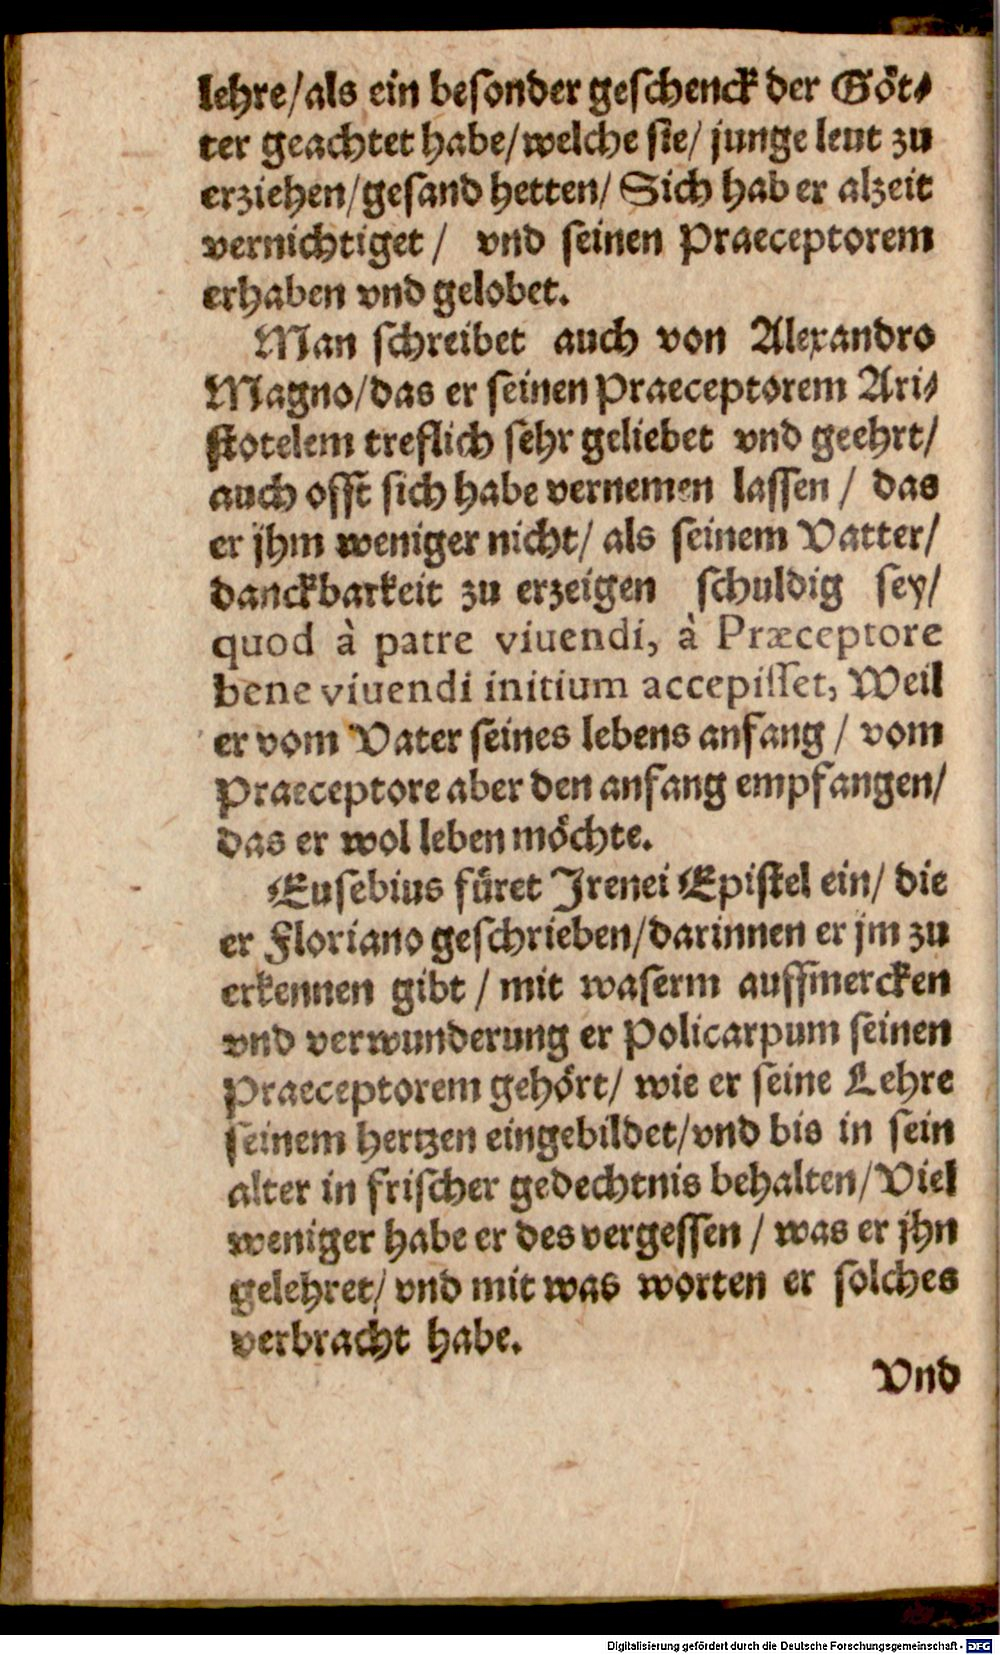 lehre/als ein besonder geschenck der Göt⸗
ter geachtet habe/welche sie/ junge leut zu
erziehen/gesand hetten/ Sich hab er alzeit
vernichtiget / vnd seinen Praeceptorem
erhaben vnd gelobet.
Man schreibet auch von Alexandro
Magno/das er seinen Praeceptorem Ari⸗
stotelem treflich sehr geliebet vnd geehrt/
auch offt sich habe vernemen lassen / das
er jhm weniger nicht/ als seinem Vatter/
danckbarkeit zu erzeigen schuldig sey/
quod à patre viuendi, à Præceptore
bene viuendi initium accepisset, Weil
er vom Vater seines lebens anfang / vom
Praeceptore aber den anfang empfangen/
das er wol leben möchte.
Eusebius füret Irenei Epistel ein/ die
er Floriano geschrieben/darinnen er jm zu
erkennen gibt / mit waserm auffmercken
vnd verwunderung er Policarpum seinen
Praeceptorem gehört/ wie er seine Lehre
seinem hertzen eingebildet/vnd bis in sein
alter in frischer gedechtnis behalten/Viel
weniger habe er des vergessen / was er jhn
gelehret/ vnd mit was worten er solches
verbracht habe.
Vnd
Digitalisierung gefördert durch die Deutsche Forschungsgemeinschaft - DFG